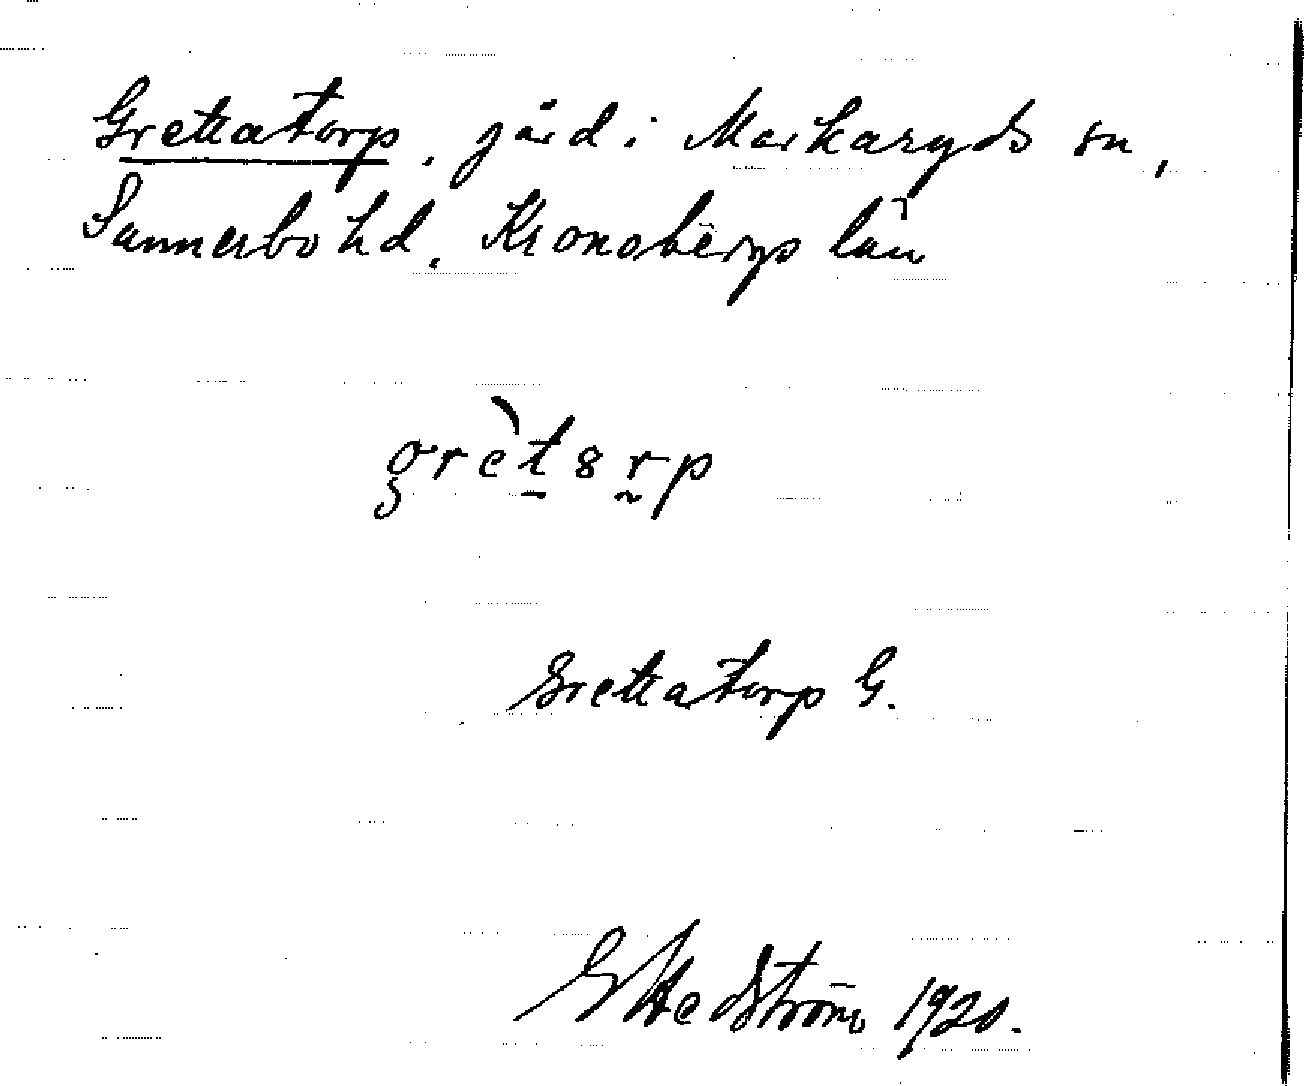 Grettatorp, gård i Markaryds sn,
Sunnerbo hd, Kronobergs län
grèt8rp
Grettatorp G.
G Hedström 1920.